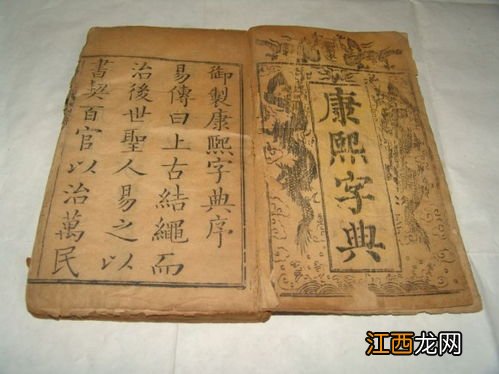 康熙字典
御製康熙字典序
易傳曰上古結繩而
治後世聖人易之以
書契百官以治萬民
江西龙网